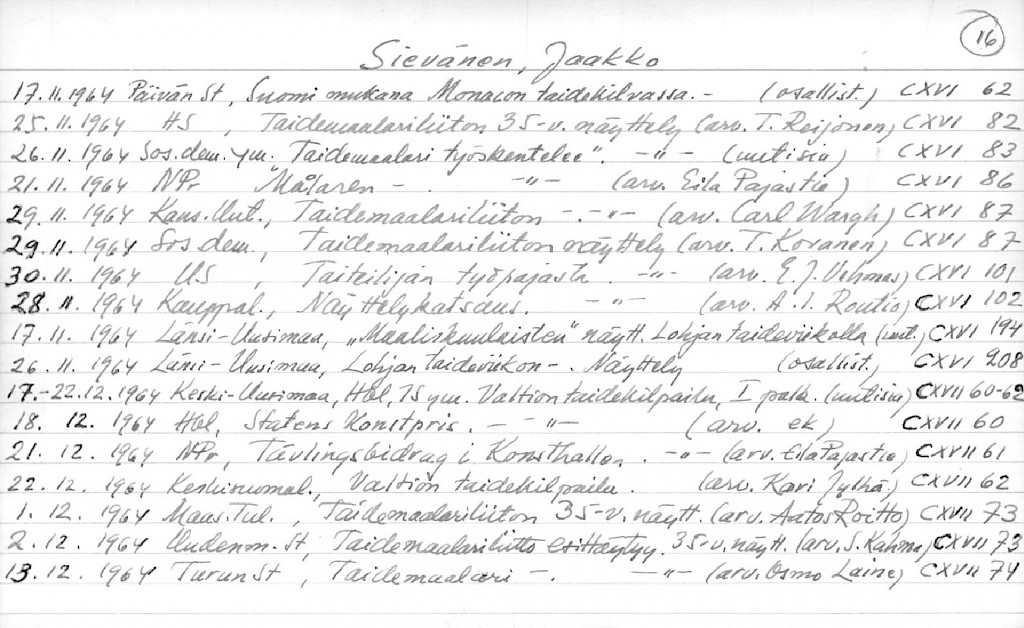 16
Sievänen, Jaakko
17.11.1964 Päivän St, Suomi mukana Monacon taidekilvassa. - (osallist.) CXVI 62
25.11.1964 HS , Taidemaalariliiton 35-v. näyttely (arv. T. Reijonen) CXVI 82
26.11.1964 Sos.dem. ym. "Taidemaalari työskentelee". -"- (uutisia) CXVI 83
21.11.1964 NPr "Målaren - . -"- (arv. Eila Pajastie) CXVI 86
29.11.1964 Kans.Uut., Taidemaalariliiton -.-"- (arv. Carl Wargh) CXVI 87
29.11.1964 Sos.dem., Taidemaalariliiton näyttely (arv. T. Kovanen) CXVI 87
30.11.1964 US , Taiteilijan työpajasta . -"- (arv. E.J. Vehmas) CXVI 101
28.11.1964 Kauppal., Näyttelykatsaus. -"- (arv. A.I. Routio) CXVI 102
17.11.1964 Länsi-Uusimaa, "Maaliskuulaisten" näytt. Lohjan taideviikolla (uut.) CXVI 194
26.11.1964 Länsi-Uusimaa, Lohjan taideviikon -. Näyttely (osallist.) CXVI 208
17.-22.12.1964 Keski-Uusimaa, Hbl, TS ym. Valtion taidekilpailu, I palk. (uutisia) CXVII 60-62
18. 12. 1964 Hbl, Statens konstpris. - -"- (arv. ek) CXVII 60
21. 12. 1964 NPr, Tävlingsbidrag i Konsthallen . -"- (arv. Eila Pajastie) CXVII 61
22. 12. 1964 Keskisuomal., Valtion taidekilpailu . (arv. Kari Jylhä) CXVII 62
1. 12. 1964 Maas.Tul. , Taidemaalariliiton 35-v. näytt. (arv. Aatos Roitto) CXVII 73
2. 12. 1964 Uudenm. St, Taidemaalariliitto esittäytyy. 35-v. näytt. (arv. S. Kahma) CXVII 73
13. 12. 1964 Turun St , Taidemaalari -. -"- (arv. Osmo Laine) CXVII 74